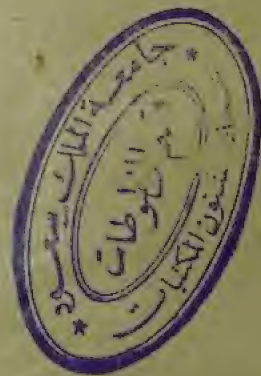 * جامعة الملك سعود *
قسم
المخطوطات
شئون المكتبات